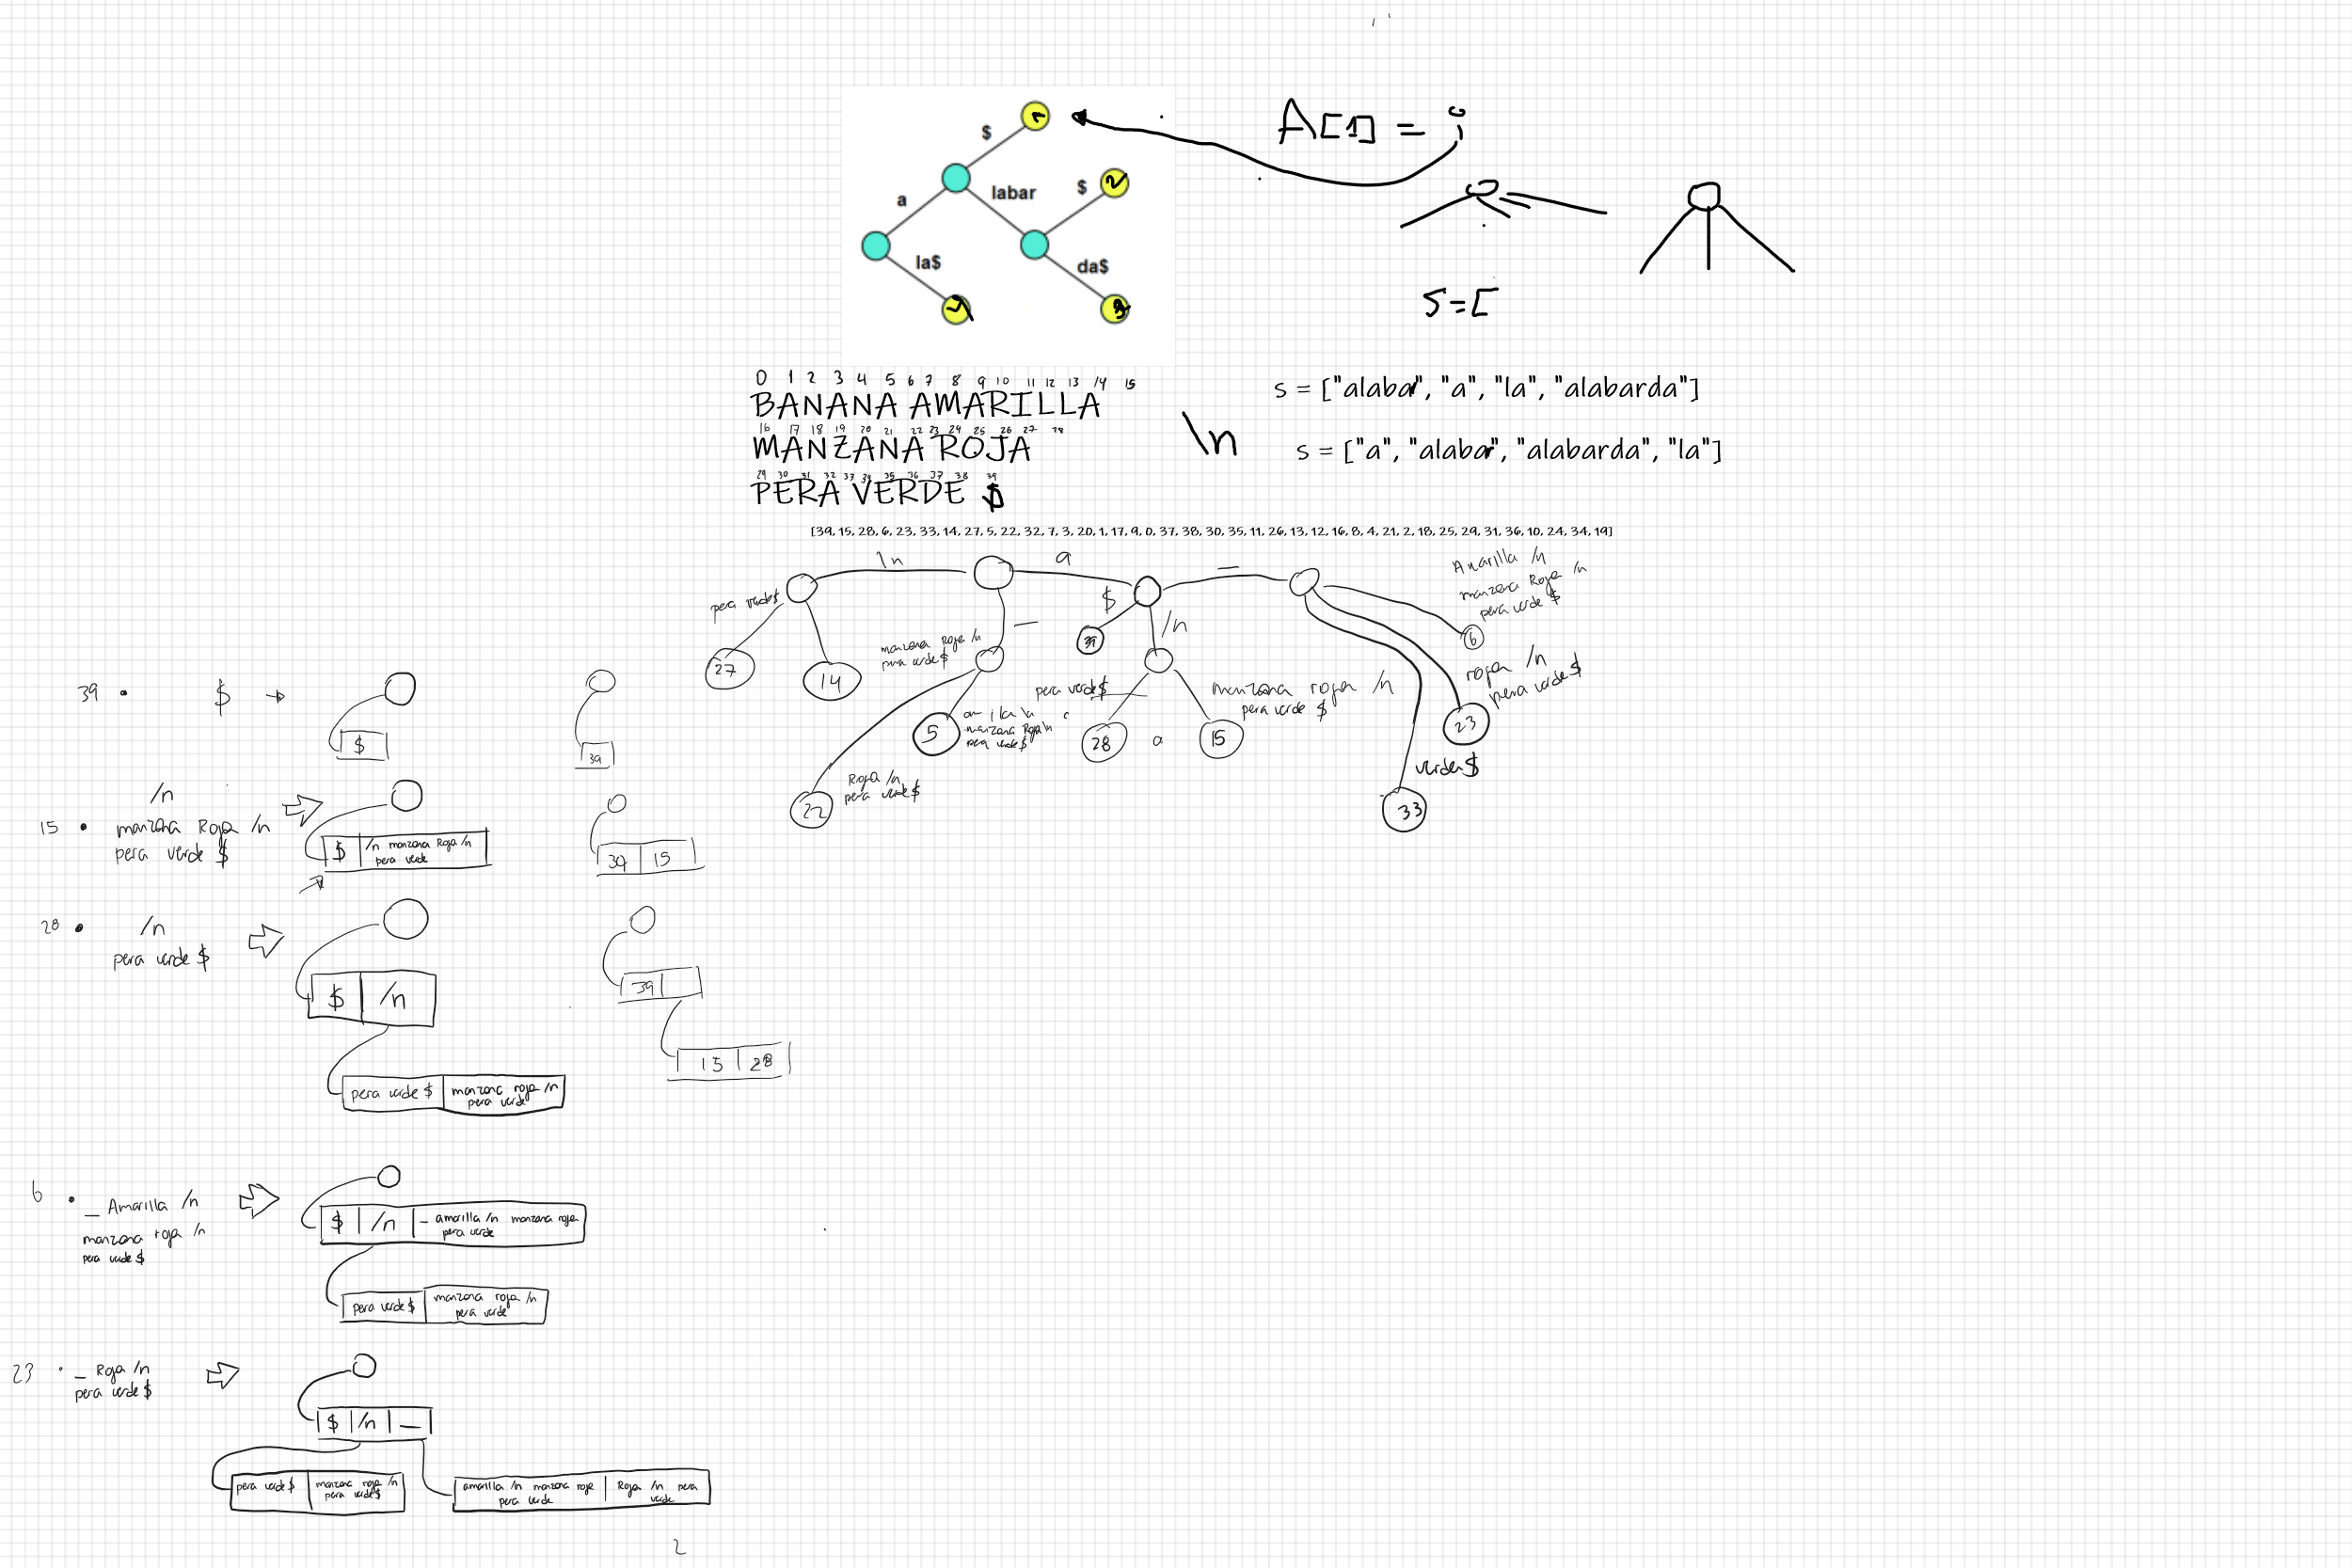 $
a
labar
$
la$
da$
A[1] =
S=[
0 1 2 3 4 5 6 7 8 9 10 11 12 13 14 15
BANANA AMARILLA
16 17 18 19 20 21 22 23 24 25 26 27 28
MANZANA ROJA
29 30 31 32 33 34 35 36 37 38 39
PERA VERDE $
\n
s = ["alabar", "a", "la", "alabarda"]
s = ["a", "alabar", "alabarda", "la"]
[39, 15, 28, 6, 23, 33, 14, 27, 5, 22, 32, 7, 3, 20, 1, 17, 9, 0, 37, 38, 30, 35, 11, 26, 13, 12, 16, 8, 4, 21, 2, 18, 25, 29, 31, 36, 10, 24, 34, 19]
\n
a
_
Amarilla /n
manzana Roja /n
pera verde $
6
pera verde$
27
14
_
manzana Roja /n
pera verde $
5
manzana Roja \n
pera verde $
22
Roja /n
pera verde $
$
39
/n
pera verde $
28
a
15
manzana roja /n
pera verde $
roja /n
pera verde $
23
verde $
33
39 • $
$
39
15 •
/n
manzana Roja /n
pera verde $
$ /n manzana Roja /n
pera verde
39 15
28 •
/n
pera verde $
$ /n
pera verde $ manzana roja /n
pera verde
39
15 28
6 •
_ Amarilla /n
manzana roja /n
pera verde $
$ /n _ amarilla /n manzana roja
pera verde
pera verde $ manzana roja /n
pera verde
23 • _ Roja /n
pera verde $
$ /n _
pera verde $ manzana roja /n
pera verde $
amarilla /n manzana roja
pera verde
Roja /n pera
verde
2